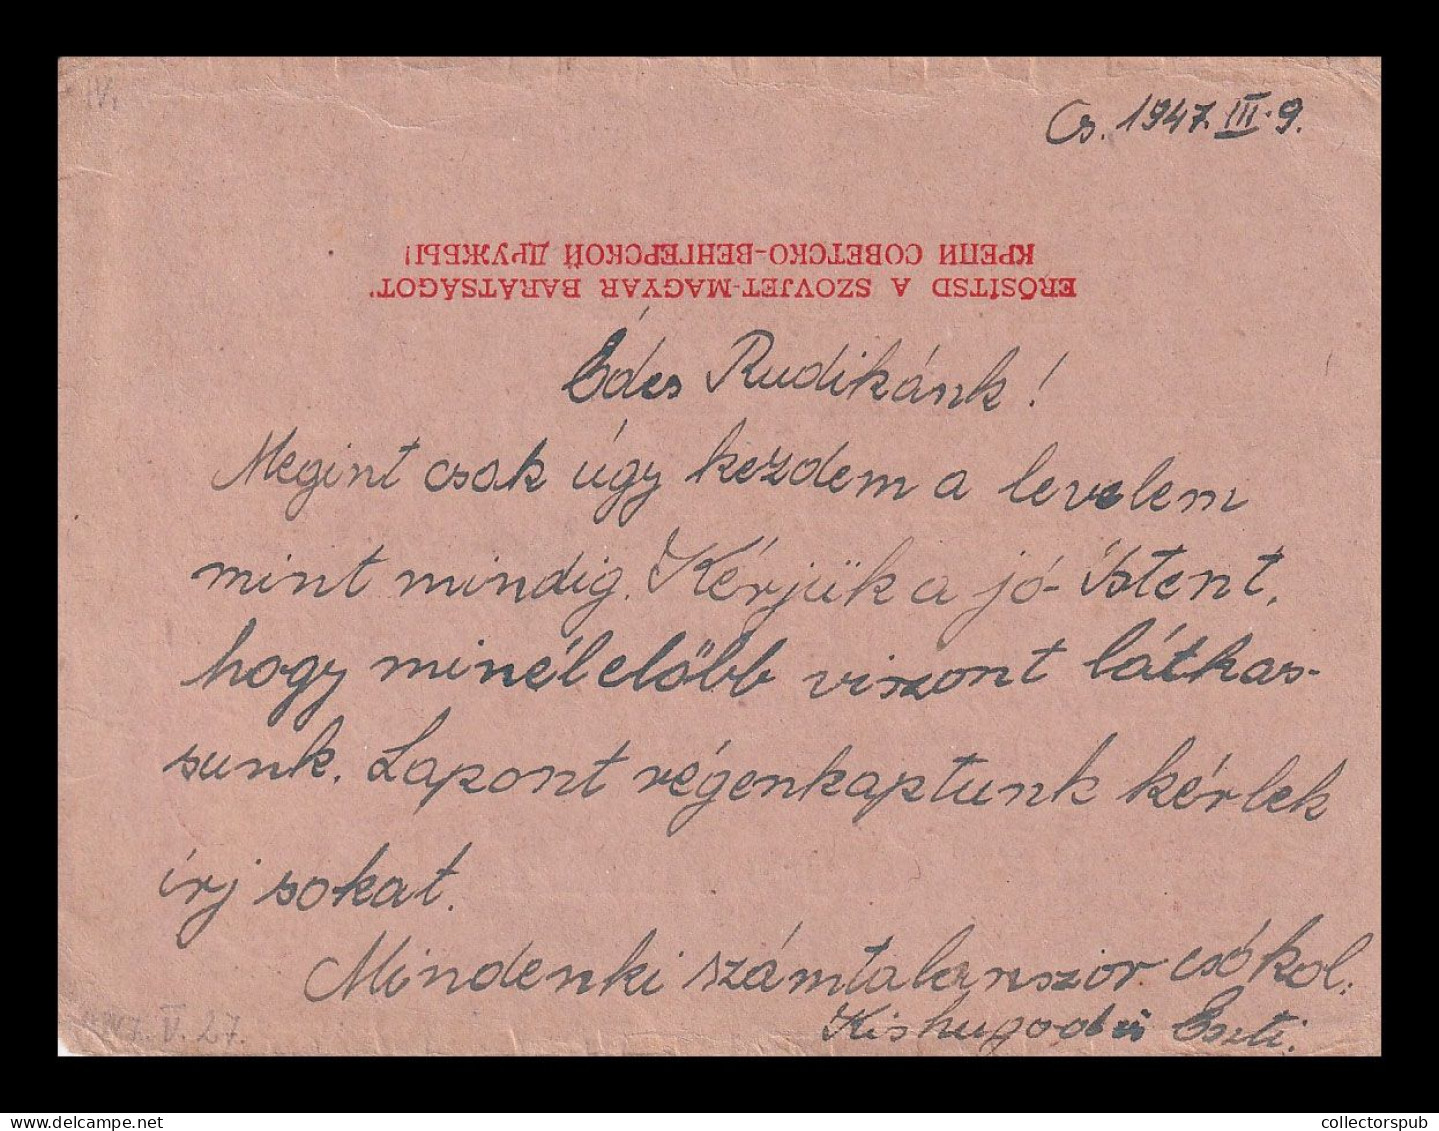 IV.
Cs. 1947. III. 9.
КРЕПИ СОВЕТСКО-ВЕНГЕРСКОЙ ДРУЖБЫ!
ERŐSÍTSD A SZOVJET-MAGYAR BARÁTSÁGOT'
Édes Rudikánk!
Megint csak úgy kezdem a levelem
mint mindig. Kérjük a jó-Istent,
hogy minélelőbb viszont láthas-
sunk. Lapont régenkaptunk kérlek
írj sokat.
Mindenki számtalanszor csókol.
Kishugod és Eszti.
1947. V. 27.
collectorspub